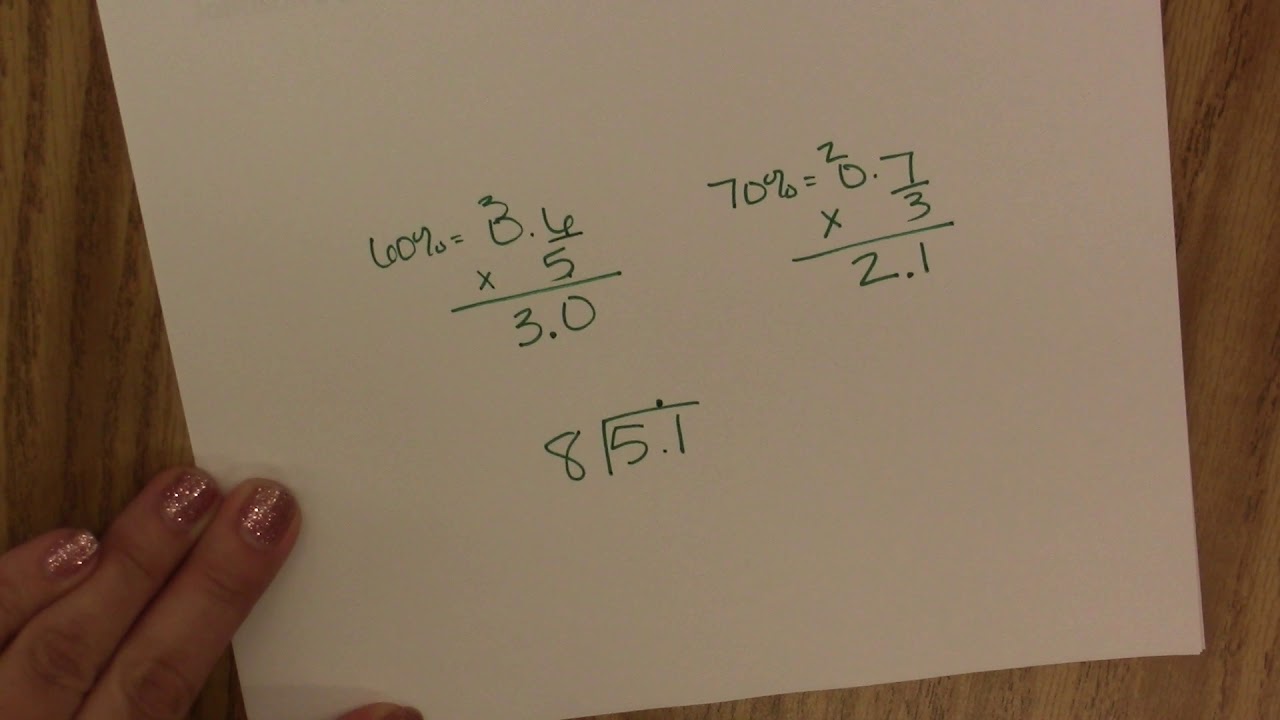 3
60% = 0.6
x 5
3.0
2
70% = 0.7
x 3
2.1
8 5.1